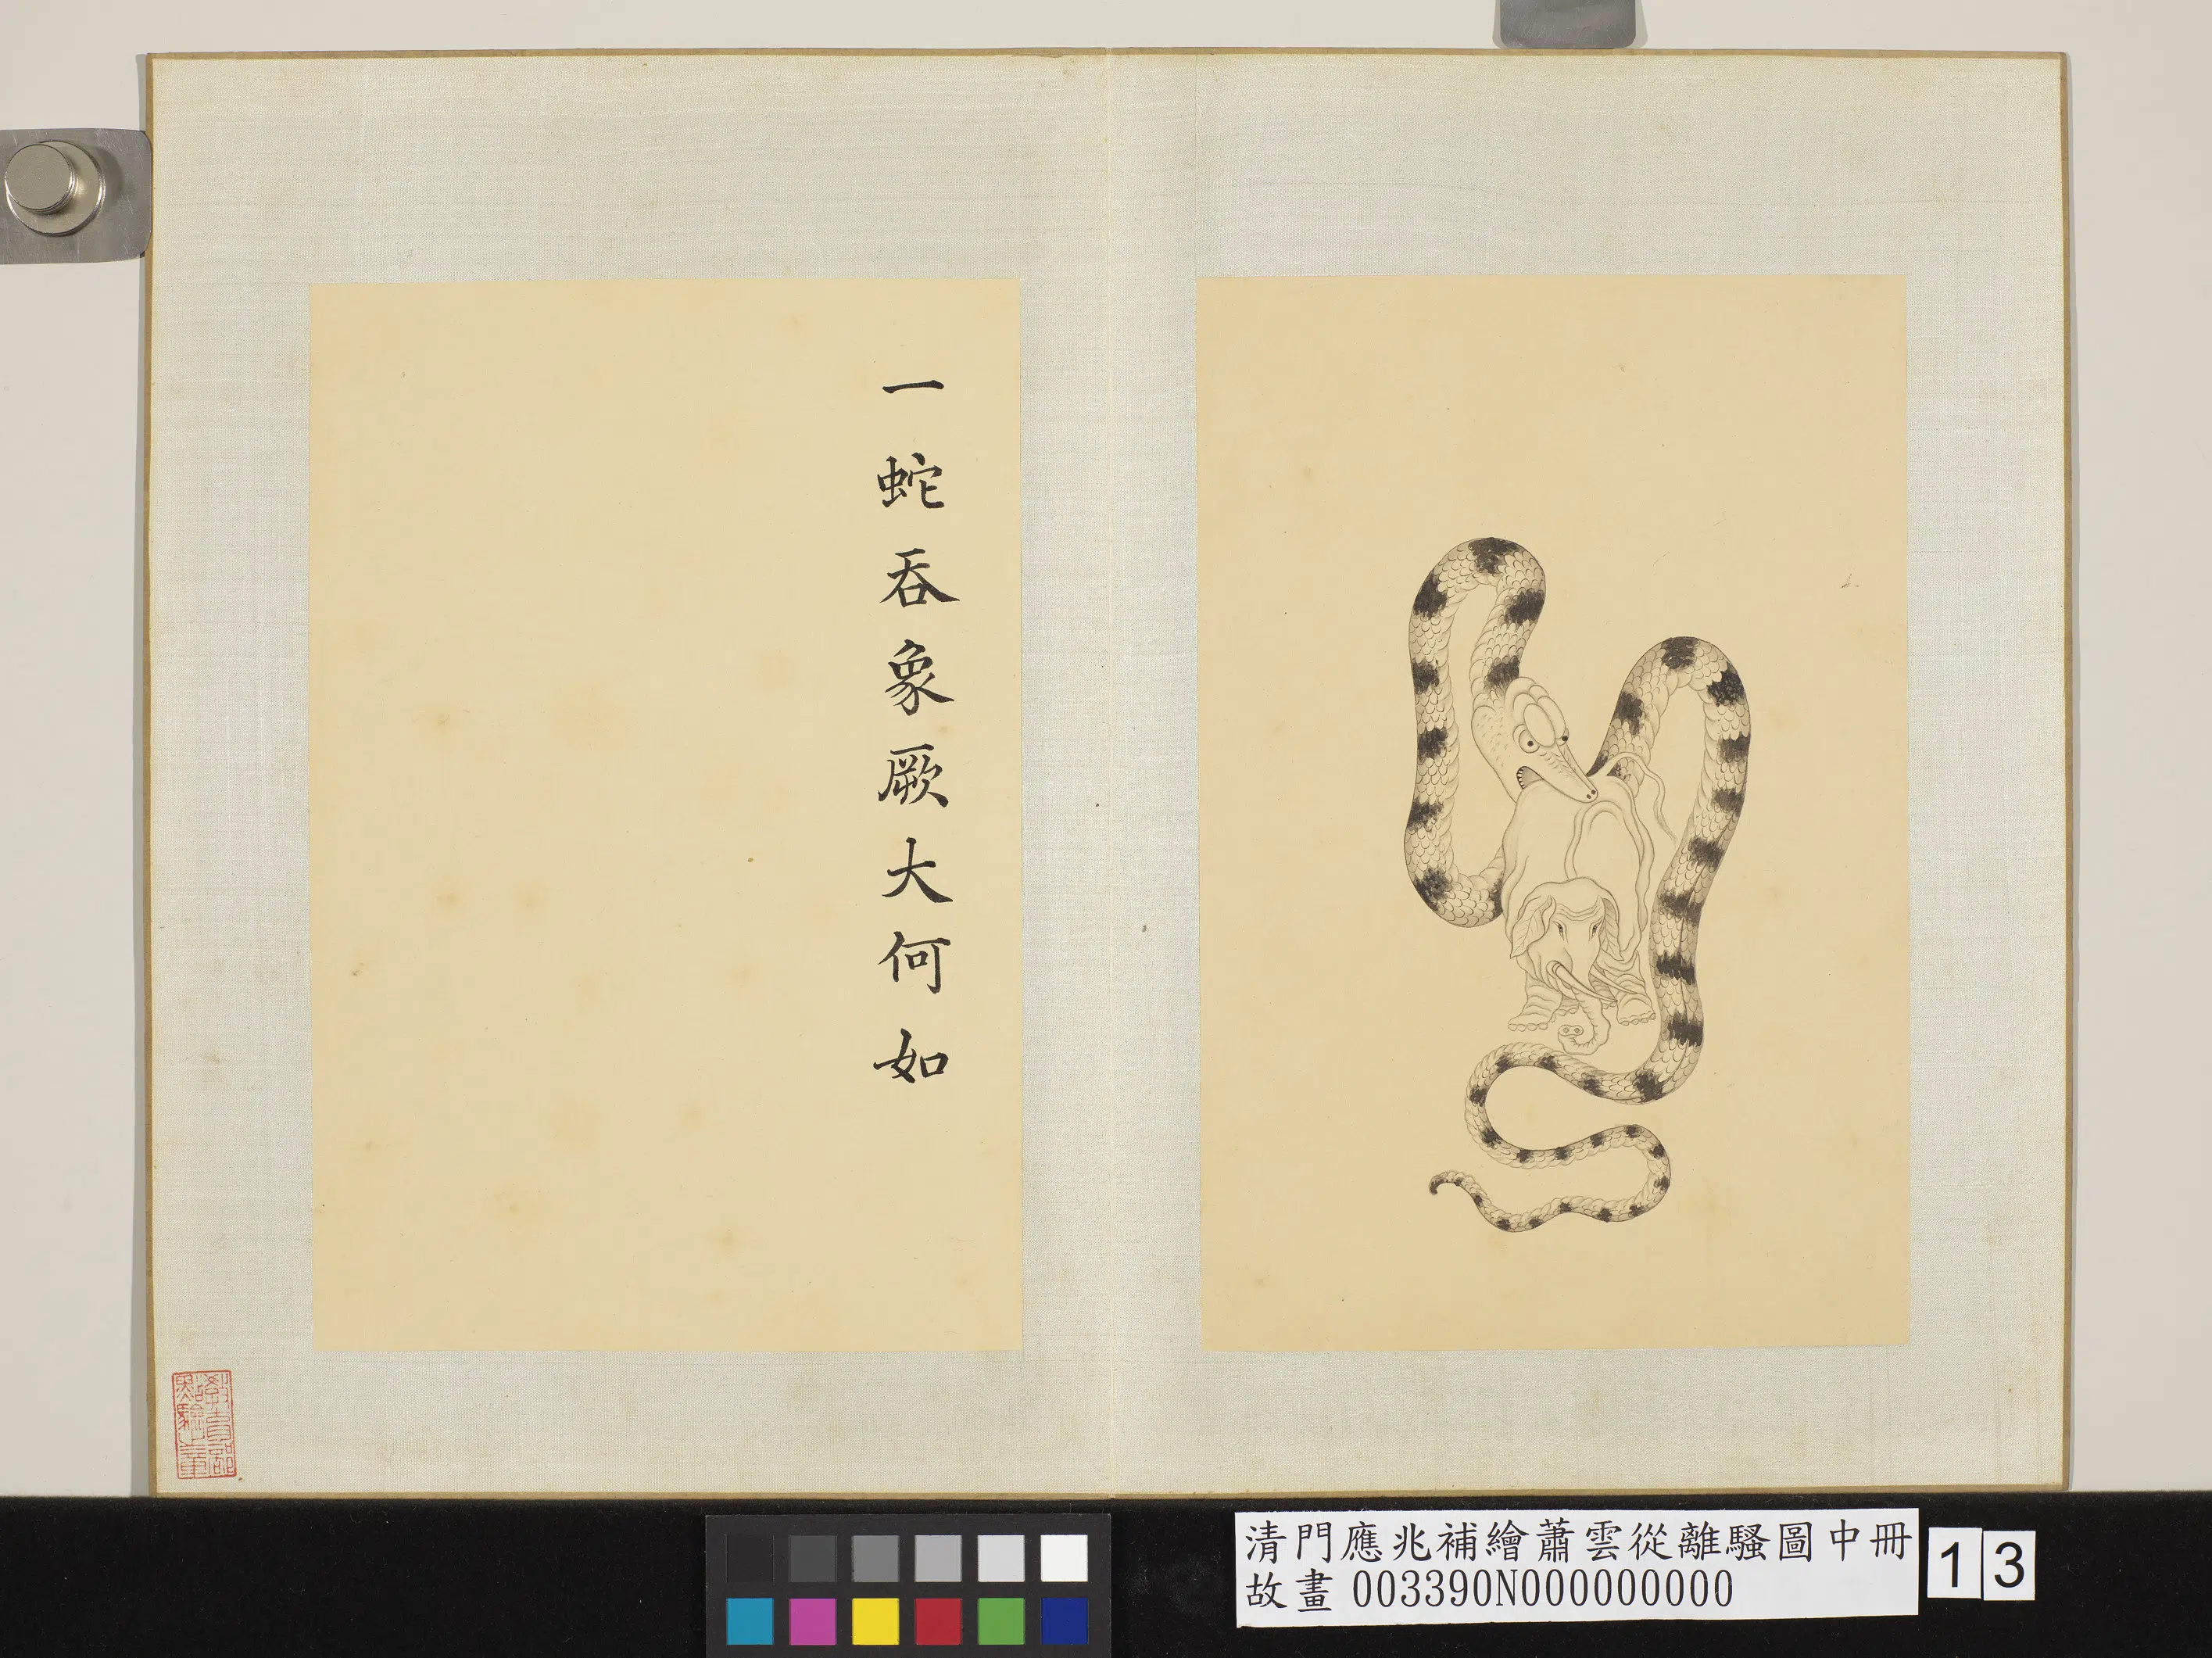 一蛇吞象厥大何如
教育部
點驗之章
清門應兆補繪蕭雲從離騷圖中冊
故畫 003390N000000000
13